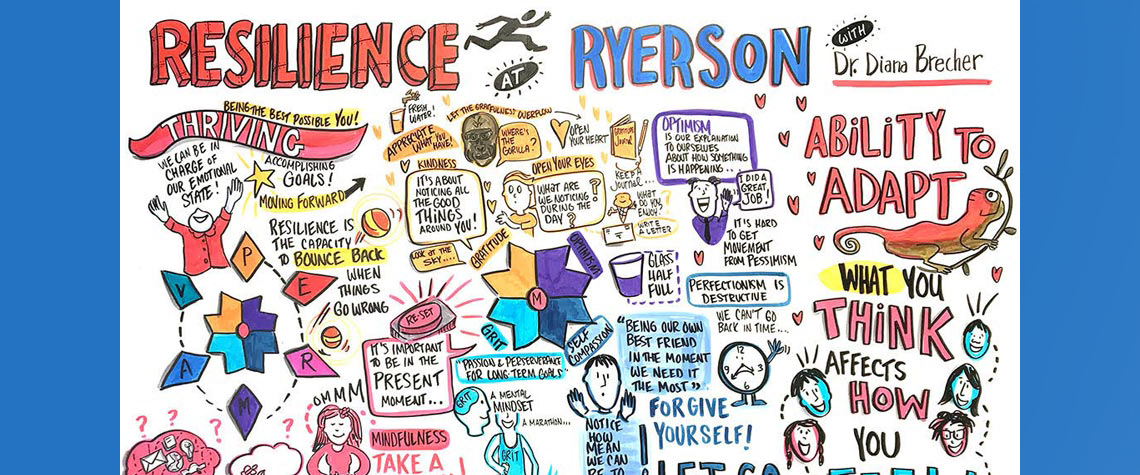 RESILIENCE
AT
RYERSON
WITH
Dr. Diana Brecher
BEING THE BEST POSSIBLE YOU!
THRIVING
WE CAN BE IN
CHARGE OF
OUR EMOTIONAL
STATE!
ACCOMPLISHING
GOALS!
MOVING FORWARD
RESILIENCE IS
THE CAPACITY
TO BOUNCE BACK
WHEN
THINGS
GO WRONG
P
E
R
M
A
V
FRESH
WATER!
LET THE GRATEFULNESS OVERFLOW
APPRECIATE
WHAT YOU
HAVE!
KINDNESS
WHERE'S
THE
GORILLA?
OPEN
YOUR HEART
GRATITUDE
JOURNAL
OPEN YOUR EYES
IT'S ABOUT
NOTICING ALL
THE GOOD
THINGS
AROUND YOU!
WHAT ARE
WE NOTICING
DURING THE
DAY?
KEEP A
JOURNAL...
WHAT
DO YOU
ENJOY?
WRITE
A LETTER
LOOK AT THE
SKY....
OPTIMISM
IS OUR EXPLANATION
TO OURSELVES
ABOUT HOW SOMETHING
IS HAPPENING...
I DID A
GREAT
JOB!
IT'S HARD
TO GET
MOVEMENT
FROM PESSIMISM
GRATITUDE
OPTIMISM
M
GRIT
SELF
COMPASSION
GLASS
HALF
FULL
PERFECTIONISM IS
DESTRUCTIVE
WE CAN'T GO
BACK IN TIME...
12
3
6
9
RE-SET
IT'S IMPORTANT
TO BE IN THE
PRESENT
MOMENT...
"PASSION & PERSEVERANT
FOR LONG TERM GOALS"
GRIT
A MENTAL
MINDSET
A MARATHON...
GRIT
"BEING OUR OWN
BEST FRIEND
IN THE MOMENT
WE NEED IT
THE MOST"
FORGIVE
YOURSELF!
LET GO
NOTICE
HOW
MEAN
WE CAN
BE TO
OHMMM
MINDFULNESS
TAKE A
? ? ? ?
ABILITY TO
ADAPT
WHAT YOU
THINK
AFFECTS
HOW
YOU